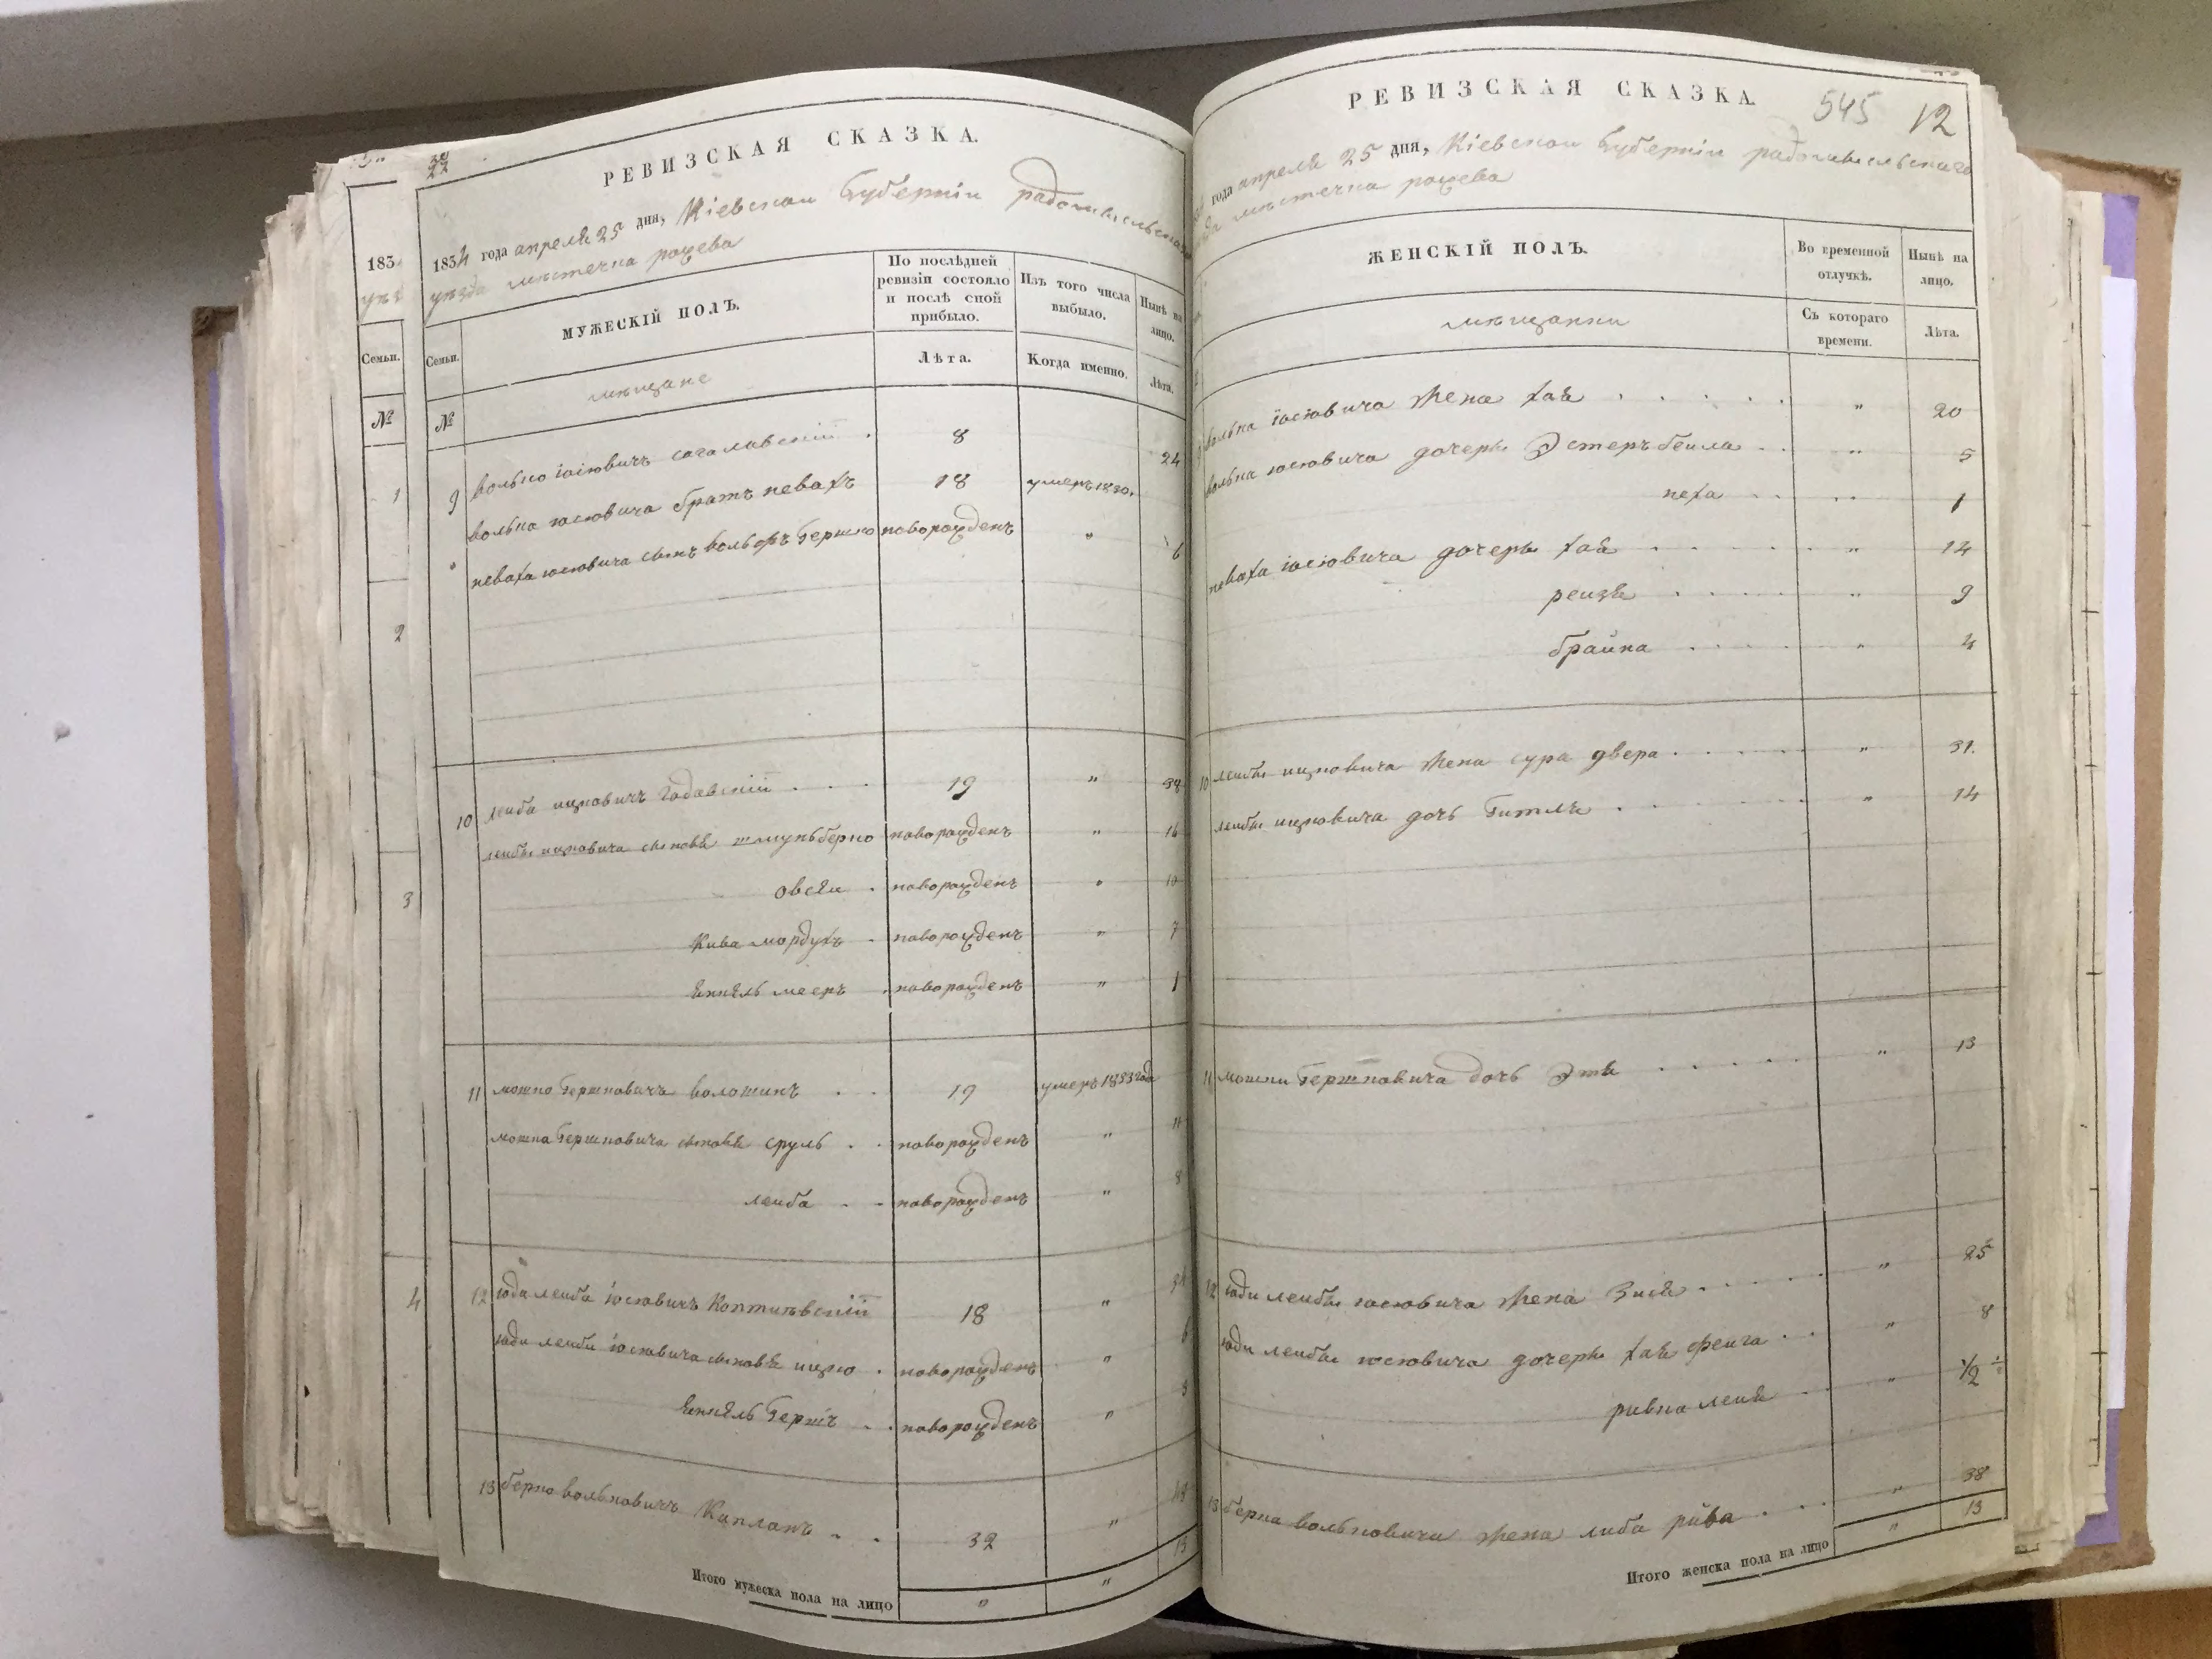 183
Семьи.
№
1
2
3
4
РЕВИЗСКАЯ СКАЗКА.
1834 года апреля 25 дня, Кіевскои Губерніи радомысльскаго
уезда мѣстечка рожева
Семьи.
МУЖЕСКІЙ ПОЛЪ.
По послѣдней ревизіи состояло и послѣ сной прибыло.
Изъ того числа выбыло.
Нынѣ на лицо.
№
мѣщане
Лѣта.
Когда именно.
Лѣта.
9 волько іосіовичъ 8 24
волька іосіовича братъ невахъ 18 умеръ 1830.
неваха іосіовича сынъ вольфъ Гершко новорожденъ " 6
10 леиба ицковичъ Годавскіи 19 "
леибы ицковича сыновѣ шмуль берко новорожденъ " 16
овсѣи новорожденъ " 10
Кива мордухъ новорожденъ " 7
Янкѣль мееръ новорожденъ " 1
11 мошко Гершковичъ волошинъ 19 умеръ 1833 года
мошка Гершковича сыновѣ сруль новорожденъ " 11
леиба новорожденъ " 8
12 юда леиба іосіовичъ 18 " 34
юди леибы іосіовича сыновѣ ицко новорожденъ " 6
Янкѣль Гершъ новорожденъ " 3
13 берко вольковичъ Капланъ 32 " 48
Итого мужеска пола на лицо " " 13
РЕВИЗСКАЯ СКАЗКА.
545 12
года апреля 25 дня, Кіевскои Губерніи радомысльскаго
мѣстечка рожева
ЖЕНСКІЙ ПОЛЪ.
Во временной отлучкѣ.
Нынѣ на лицо.
мѣщанки
Съ котораго времени.
Лѣта.
волька іосіовича жена хая " 20
волька іосіовича дочери Эстеръ беила " 5
неха " 1
неваха іосіовича дочери хая " 14
реизя " 9
браина " 4
10 леибы ицковича жена сура двера " 31.
леибы ицковича дочь Гитля " 14
11 мошки Гершковича дочь Этя " 13
12 юди леибы іосіовича жена Зися " 25
юди леибы іосіовича дочери хая феига " 8
ривка лея " 1/2
13 берка вольковича жена либа рива " 38
Итого женска пола на лицо " 13